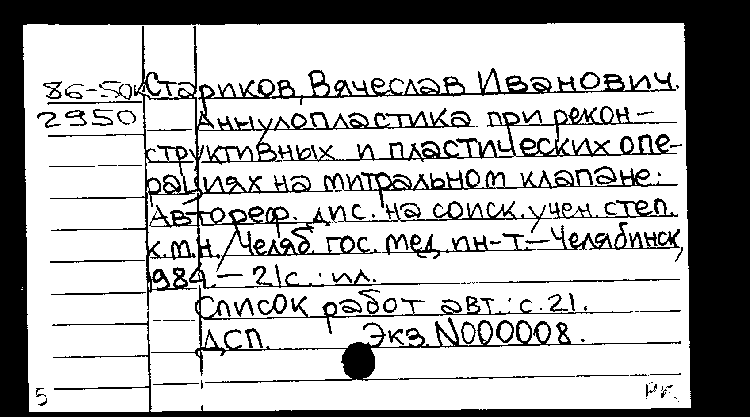 86-50к Стариков, Вячеслав Иванович.
2950 Аннулопластика при рекон-
структивных и пластических опе-
рациях на митральном клапане:
Автореф. дис. на соиск. учен. степ.
к.м.н. / Челяб. гос. мед. ин-т. – Челябинск,
1984. – 21с.: ил.
Список работ авт.: с. 21.
ДСП. Экз. N000008.
5 РК.